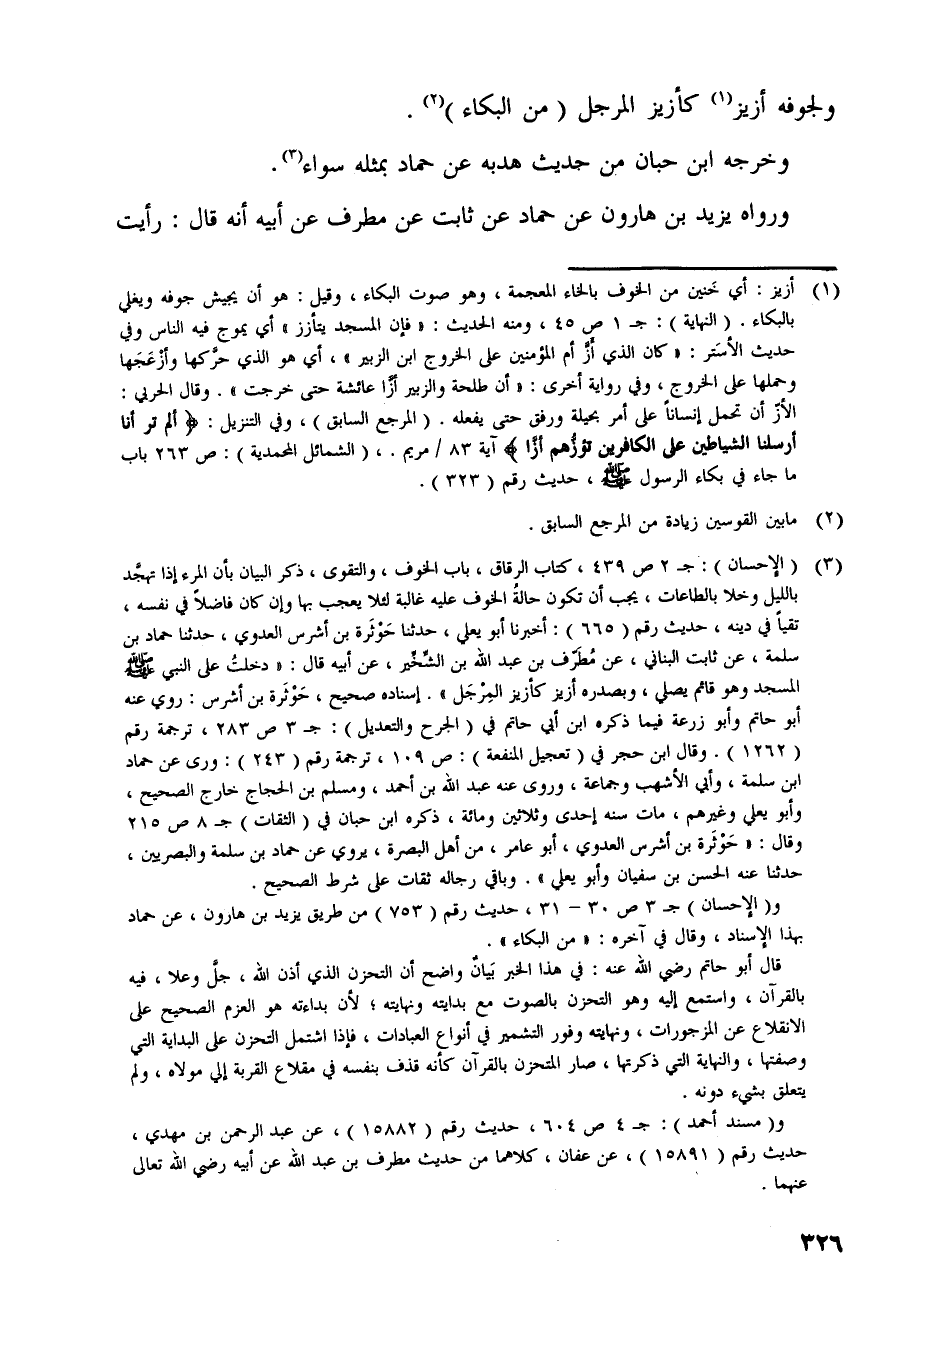 ولجوفه أزيز(١) كأزيز المرجل ( من البكاء )(٢) .
وخرجه ابن حبان من حديث هدبه عن حماد بمثله سواء(٣) .
ورواه يزيد بن هارون عن حماد عن ثابت عن مطرف عن أبيه أنه قال : رأيت
(١) أزيز : أي خَنين من الخوف بالخاء المعجمة ، وهو صوت البكاء ، وقيل : هو أن يجيش جوفه ويغلي
بالبكاء . ( النهاية ) : جـ ١ ص ٤٥ ، ومنه الحديث : « فإن المسجد يتأزز » أي يموج فيه الناس وفي
حديث الأستر : « كان الذي أزَّ أم المؤمنين على الخروج ابن الزبير » ، أي هو الذي حرَّكها وأزْعَجَها
وحملها على الخروج ، وفي رواية أخرى : « أن طلحة والزبير أزَّا عائشة حتى خرجت » . وقال الحربي :
الأزّ أن تحمل إنساناً على أمر بحيلة ورفق حتى يفعله . ( المرجع السابق ) ، وفي التنزيل : ﴿ ألم تر أنا
أرسلنا الشياطين على الكافرين تؤزُّهم أزَّا ﴾ آية ٨٣ / مريم . ، ( الشمائل المحمدية ) : ص ٢٦٣ باب
ما جاء في بكاء الرسول ﷺ ، حديث رقم ( ٣٢٣ ) .
(٢) مابين القوسين زيادة من المرجع السابق .
(٣) ( الإحسان ) : جـ ٢ ص ٤٣٩ ، كتاب الرقاق ، باب الخوف ، والتقوى ، ذكر البيان بأن المرء إذا تهجَّد
بالليل وخلا بالطاعات ، يجب أن تكون حالةُ الخوف عليه غالبة لئلا يعجب بها وإن كان فاضلاً في نفسه ،
تقياً في دينه ، حديث رقم ( ٦٦٥ ) : أخبرنا أبو يعلي ، حدثنا حَوْثَرة بن أشرس العدوي ، حدثنا حماد بن
سلمة ، عن ثابت البناني ، عن مُطَرِّف بن عبد الله بن الشِّخّير ، عن أبيه قال : « دخلتُ على النبي ﷺ
المسجد وهو قائم يصلي ، وبصدره أزيز كأزيز المِرْجَل » . إسناده صحيح ، حَوْثَرة بن أشرس : روي عنه
أبو حاتم وأبو زرعة فيما ذكره ابن أبي حاتم في ( الجرح والتعديل ) : جـ ٣ ص ٢٨٣ ، ترجمة رقم
( ١٢٦٢ ) . وقال ابن حجر في ( تعجيل المنفعة ) : ص ١٠٩ ، ترجمة رقم ( ٢٤٣ ) : ورى عن حماد
ابن سلمة ، وأبي الأشهب وجماعة ، وروى عنه عبد الله بن أحمد ، ومسلم بن الحجاج خارج الصحيح ،
وأبو يعلي وغيرهم ، مات سنه إحدى وثلاثين ومائة ، ذكره ابن حبان في ( الثقات ) جـ ٨ ص ٢١٥
وقال : « حَوْثَرة بن أشرس العدوي ، أبو عامر ، من أهل البصرة ، يروي عن حماد بن سلمة والبصريين ،
حدثنا عنه الحسن بن سفيان وأبو يعلي » . وباقي رجاله ثقات على شرط الصحيح .
و( الإحسان ) جـ ٣ ص ٣٠ – ٣١ ، حديث رقم ( ٧٥٣ ) من طريق يزيد بن هارون ، عن حماد
بهذا الإسناد ، وقال في آخره : « من البكاء » .
قال أبو حاتم رضي الله عنه : في هذا الخبر بَيانٌ واضح أن التحزن الذي أذن الله ، جلَّ وعلا ، فيه
بالقرآن ، واستمع إليه وهو التحزن بالصوت مع بدايته ونهايته ؛ لأن بداءته هو العزم الصحيح على
الانقلاع عن المزجورات ، ونهايته وفور التشمير في أنواع العبادات ، فإذا اشتمل التحزن على البداية التي
وصفتها ، والنهاية التي ذكرتها ، صار المتحزن بالقرآن كأنه قذف بنفسه في مقلاع القربة إلي مولاه ، ولم
يتعلق بشيء دونه .
و( مسند أحمد ) : جـ ٤ ص ٦٠٤ ، حديث رقم ( ١٥٨٨٢ ) ، عن عبد الرحمن بن مهدي ،
حديث رقم ( ١٥٨٩١ ) ، عن عفان ، كلاهما من حديث مطرف بن عبد الله عن أبيه رضي الله تعالى
عنهما .
٣٢٦